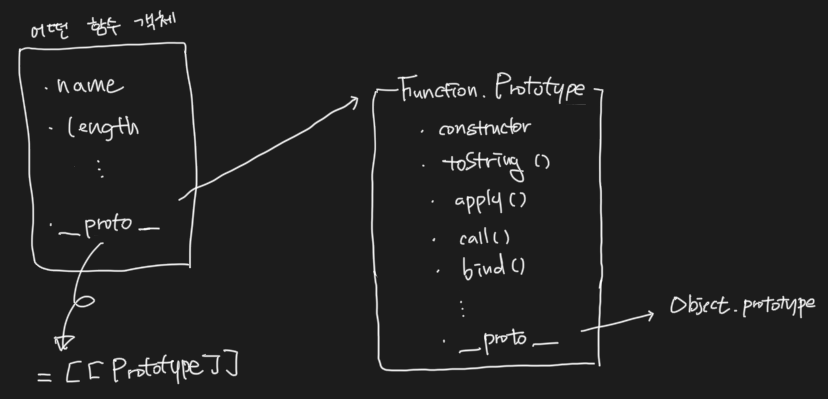 어떤 함수 객체
· name
· length
⋮
· __proto__
= [[Prototype]]
Function.Prototype
· constructor
· toString()
· apply()
· call()
· bind()
⋮
· __proto__
Object.prototype